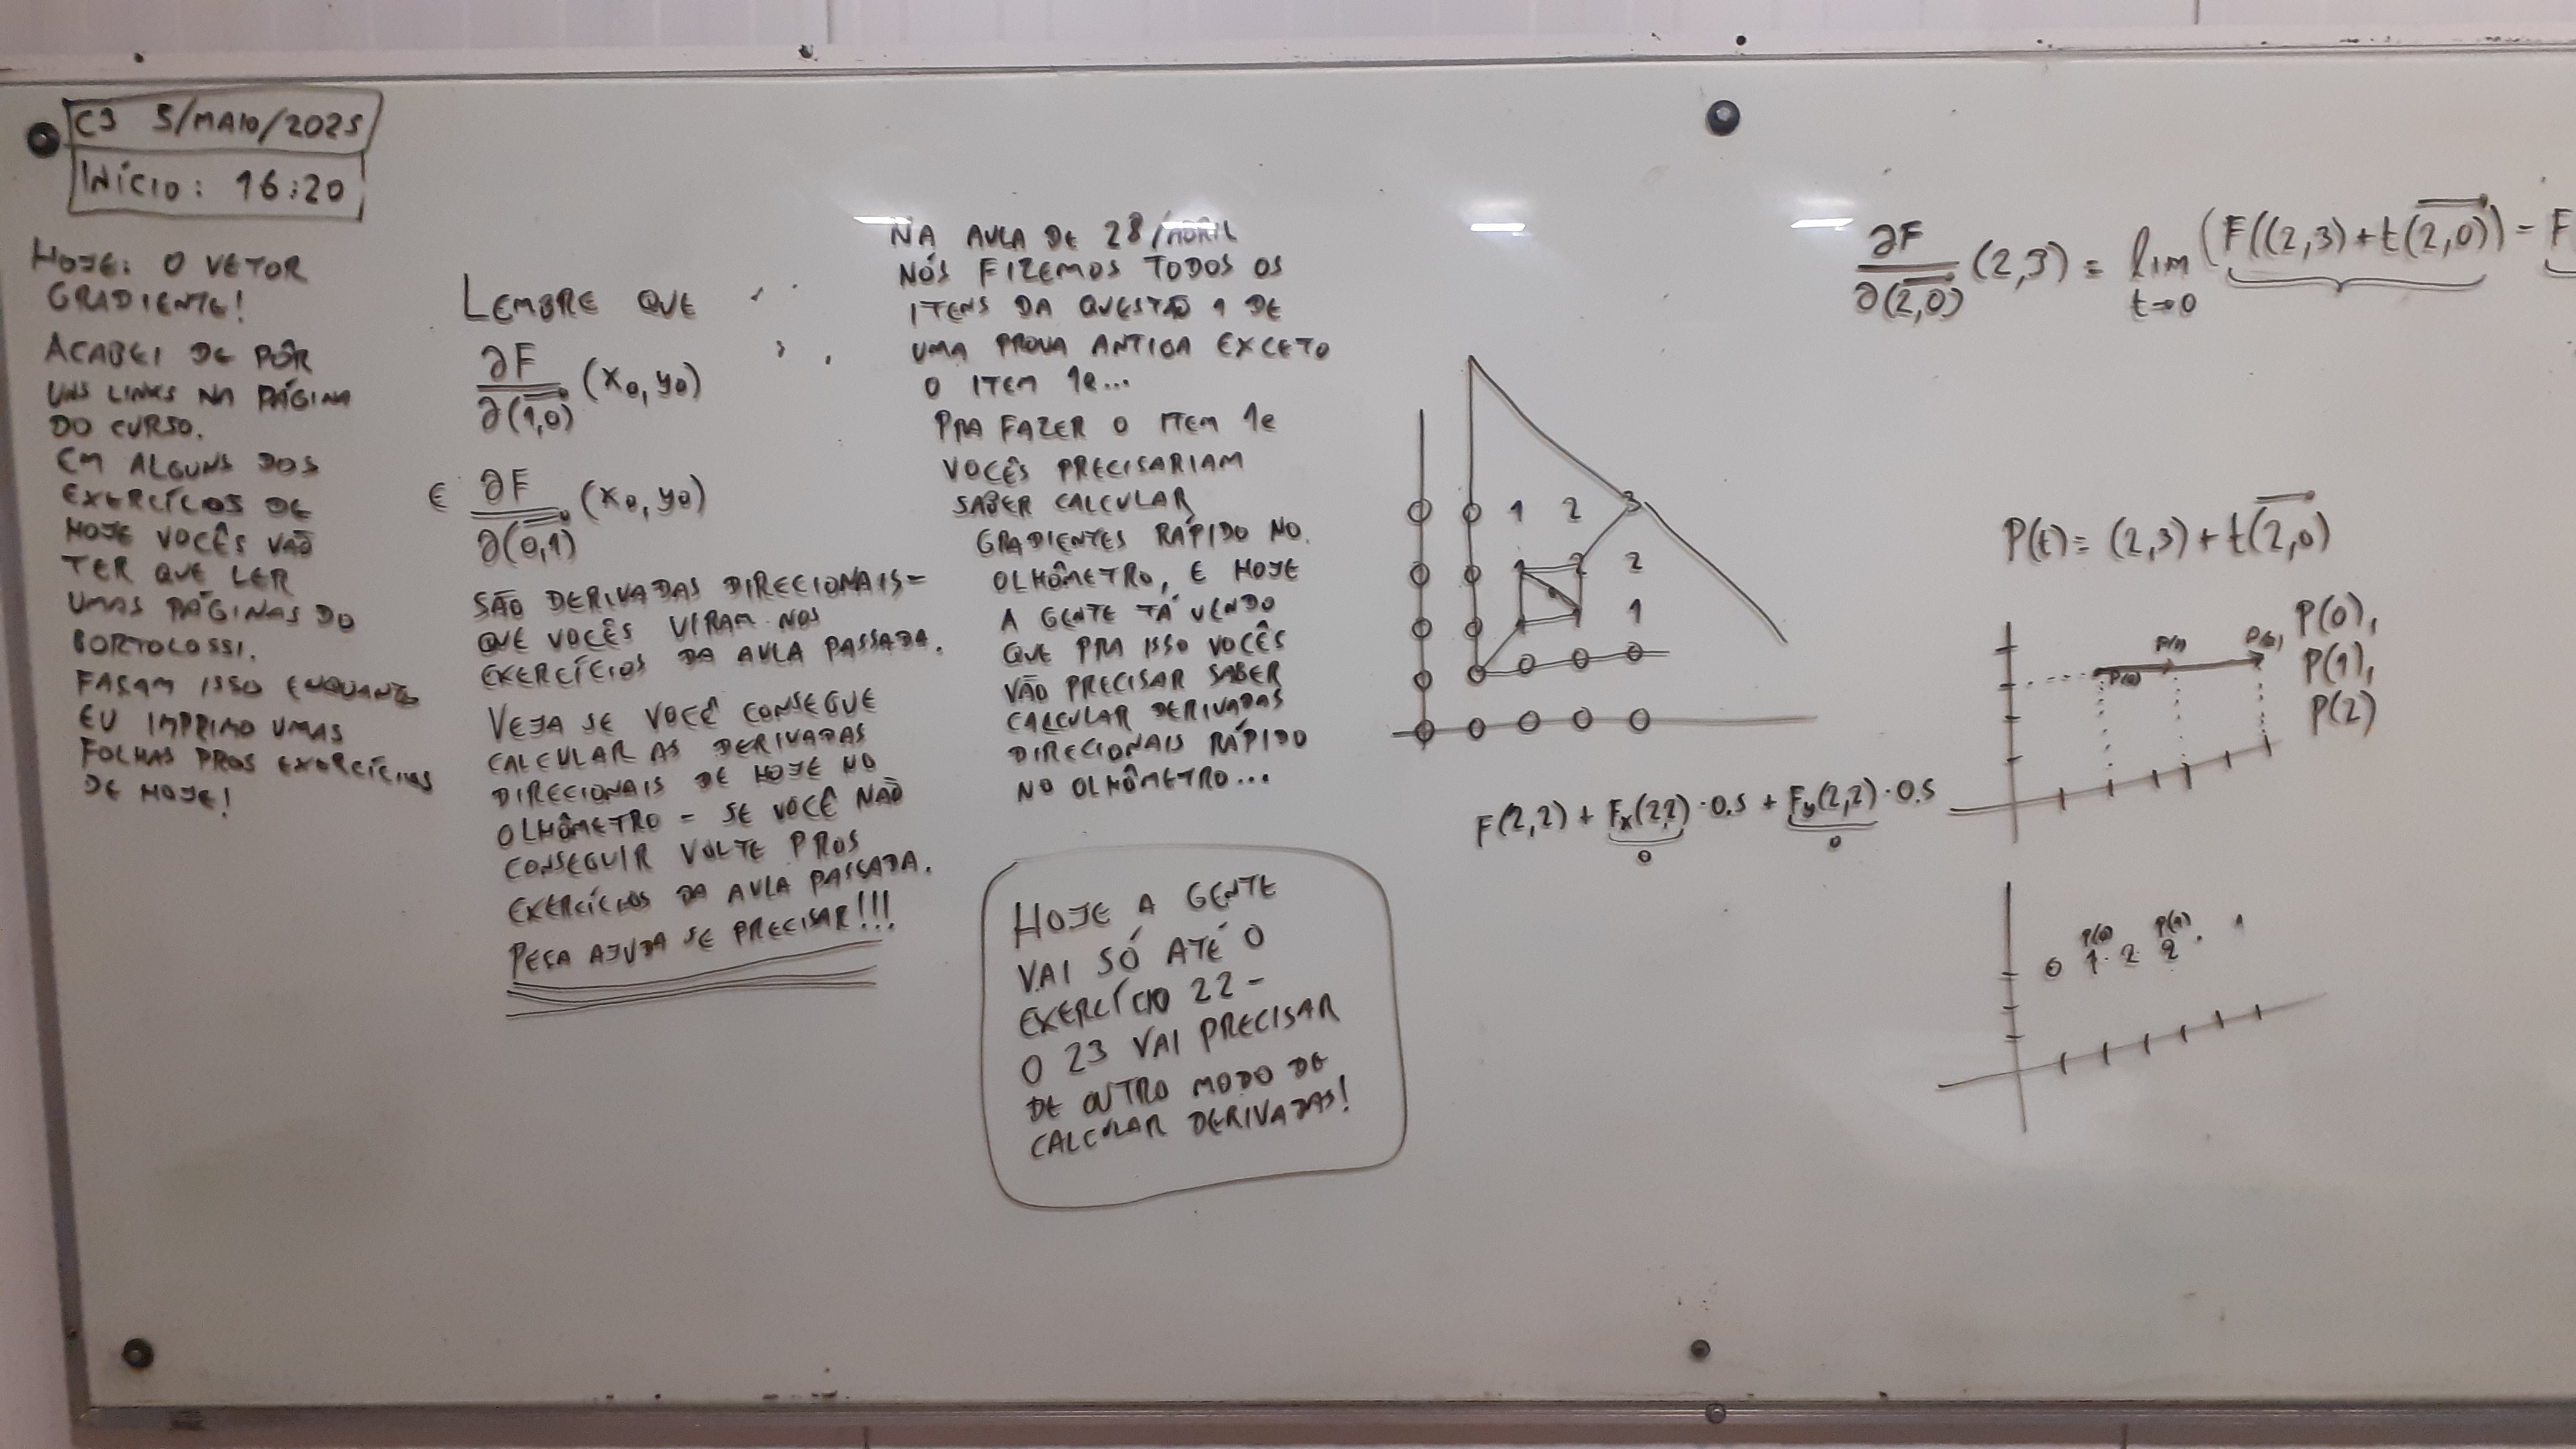 C3 5/MAIO/2025
INÍCIO: 16:20
HOJE: O VETOR
GRADIENTE!
ACABEI DE PÔR
UNS LINKS NA PÁGINA
DO CURSO.
EM ALGUNS DOS
EXERCÍCIOS DE
HOJE VOCÊS VÃO
TER QUE LER
UMAS PÁGINAS DO
BORTOLOSSI.
FAÇAM ISSO ENQUANTO
EU IMPRIMO UMAS
FOLHAS PROS EXERCÍCIOS
DE HOJE!
LEMBRE QUE
∂F/∂(1,0) (x₀, y₀)
E ∂F/∂(0,1) (x₀, y₀)
SÃO DERIVADAS DIRECIONAIS –
QUE VOCÊS VIRAM NOS
EXERCÍCIOS DA AULA PASSADA.
VEJA SE VOCÊ CONSEGUE
CALCULAR AS DERIVADAS
DIRECIONAIS DE HOJE NO
OLHÔMETRO – SE VOCÊ NÃO
CONSEGUIR VOLTE PROS
EXERCÍCIOS DA AULA PASSADA.
PEÇA AJUDA SE PRECISAR!!!
NA AULA DE 28/ABRIL
NÓS FIZEMOS TODOS OS
ITENS DA QUESTÃO 1 DE
UMA PROVA ANTIGA EXCETO
O ITEM 1e...
PRA FAZER O ITEM 1e
VOCÊS PRECISARIAM
SABER CALCULAR
GRADIENTES RÁPIDO NO
OLHÔMETRO, E HOJE
A GENTE TÁ VENDO
QUE PRA ISSO VOCÊS
VÃO PRECISAR SABER
CALCULAR DERIVADAS
DIRECIONAIS RÁPIDO
NO OLHÔMETRO...
HOJE A GENTE
VAI SÓ ATÉ O
EXERCÍCIO 22 –
O 23 VAI PRECISAR
DE OUTRO MODO DE
CALCULAR DERIVADAS!
0 0 1 2 3
0 0 1 2 2
0 0 1 1 1
0 0 0 0 0
0 0 0 0 0
F(2,2) + Fx(2,2) · 0.5 + Fy(2,2) · 0.5
0 0
∂F/∂(2,0) (2,3) = lim t→0 (F((2,3) + t(2,0)) – F
P(t) = (2,3) + t(2,0)
P(0),
P(1),
P(2)
P(0) P(1)
0 1 2 2 1